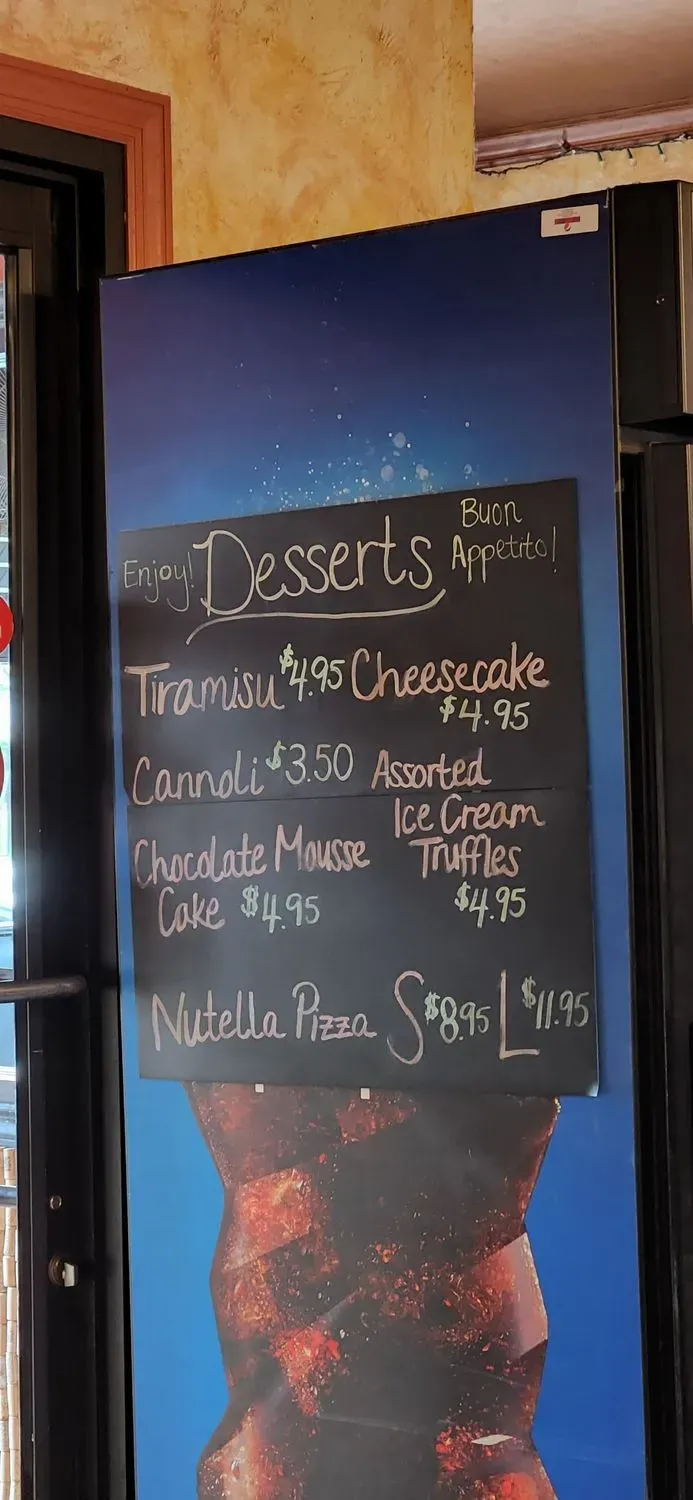 Enjoy! Desserts Buon Appetito!
Tiramisu $4.95 Cheesecake $4.95
Cannoli $3.50 Assorted Ice Cream Truffles $4.95
Chocolate Mousse
Cake $4.95
Nutella Pizza S $8.95 L $11.95